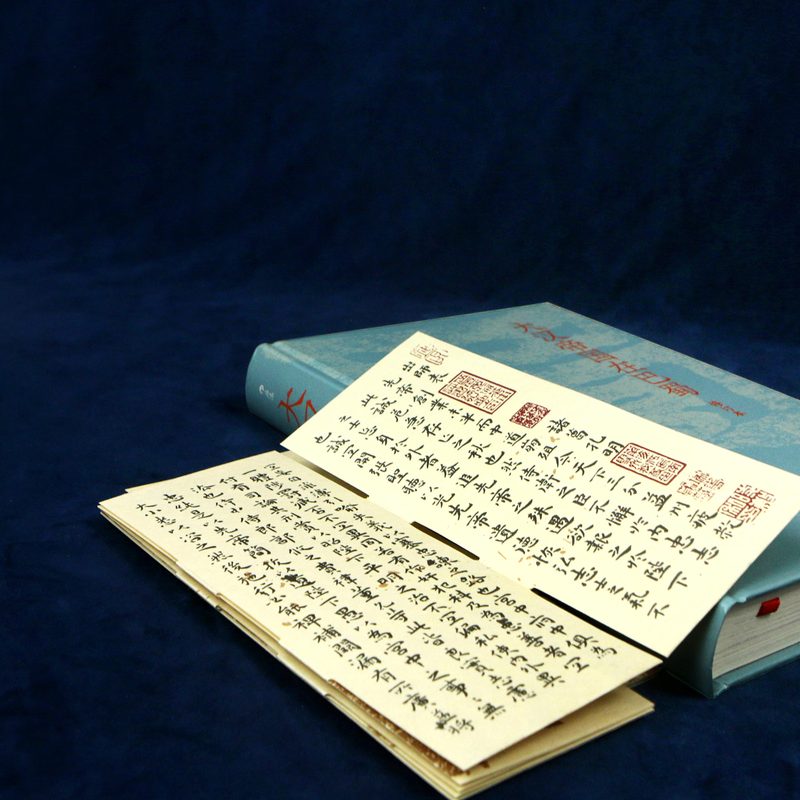 大汉帝国在巴蜀
修订本
出師表
諸葛孔明
先帝創業未半而中道崩殂今天下三分益州疲敝
此誠危急存亡之秋也然侍衛之臣不懈於內忠志
之士忘身於外者蓋追先帝之殊遇欲報之於陛下
也誠宜開張聖聽以光先帝遺德恢弘志士之氣不
宜妄自菲薄引喻失義以塞忠諫之路也宮中府中俱為
一體陟罰臧否不宜異同若有作奸犯科及為忠善者宜
付有司論其刑賞以昭陛下平明之治不宜偏私使內外異
法也侍中侍郎郭攸之費禕董允等此皆良實志慮
忠純是以先帝簡拔以遺陛下愚以為宮中之事事無
大小悉以咨之然後施行必能裨補闕漏有所廣益將